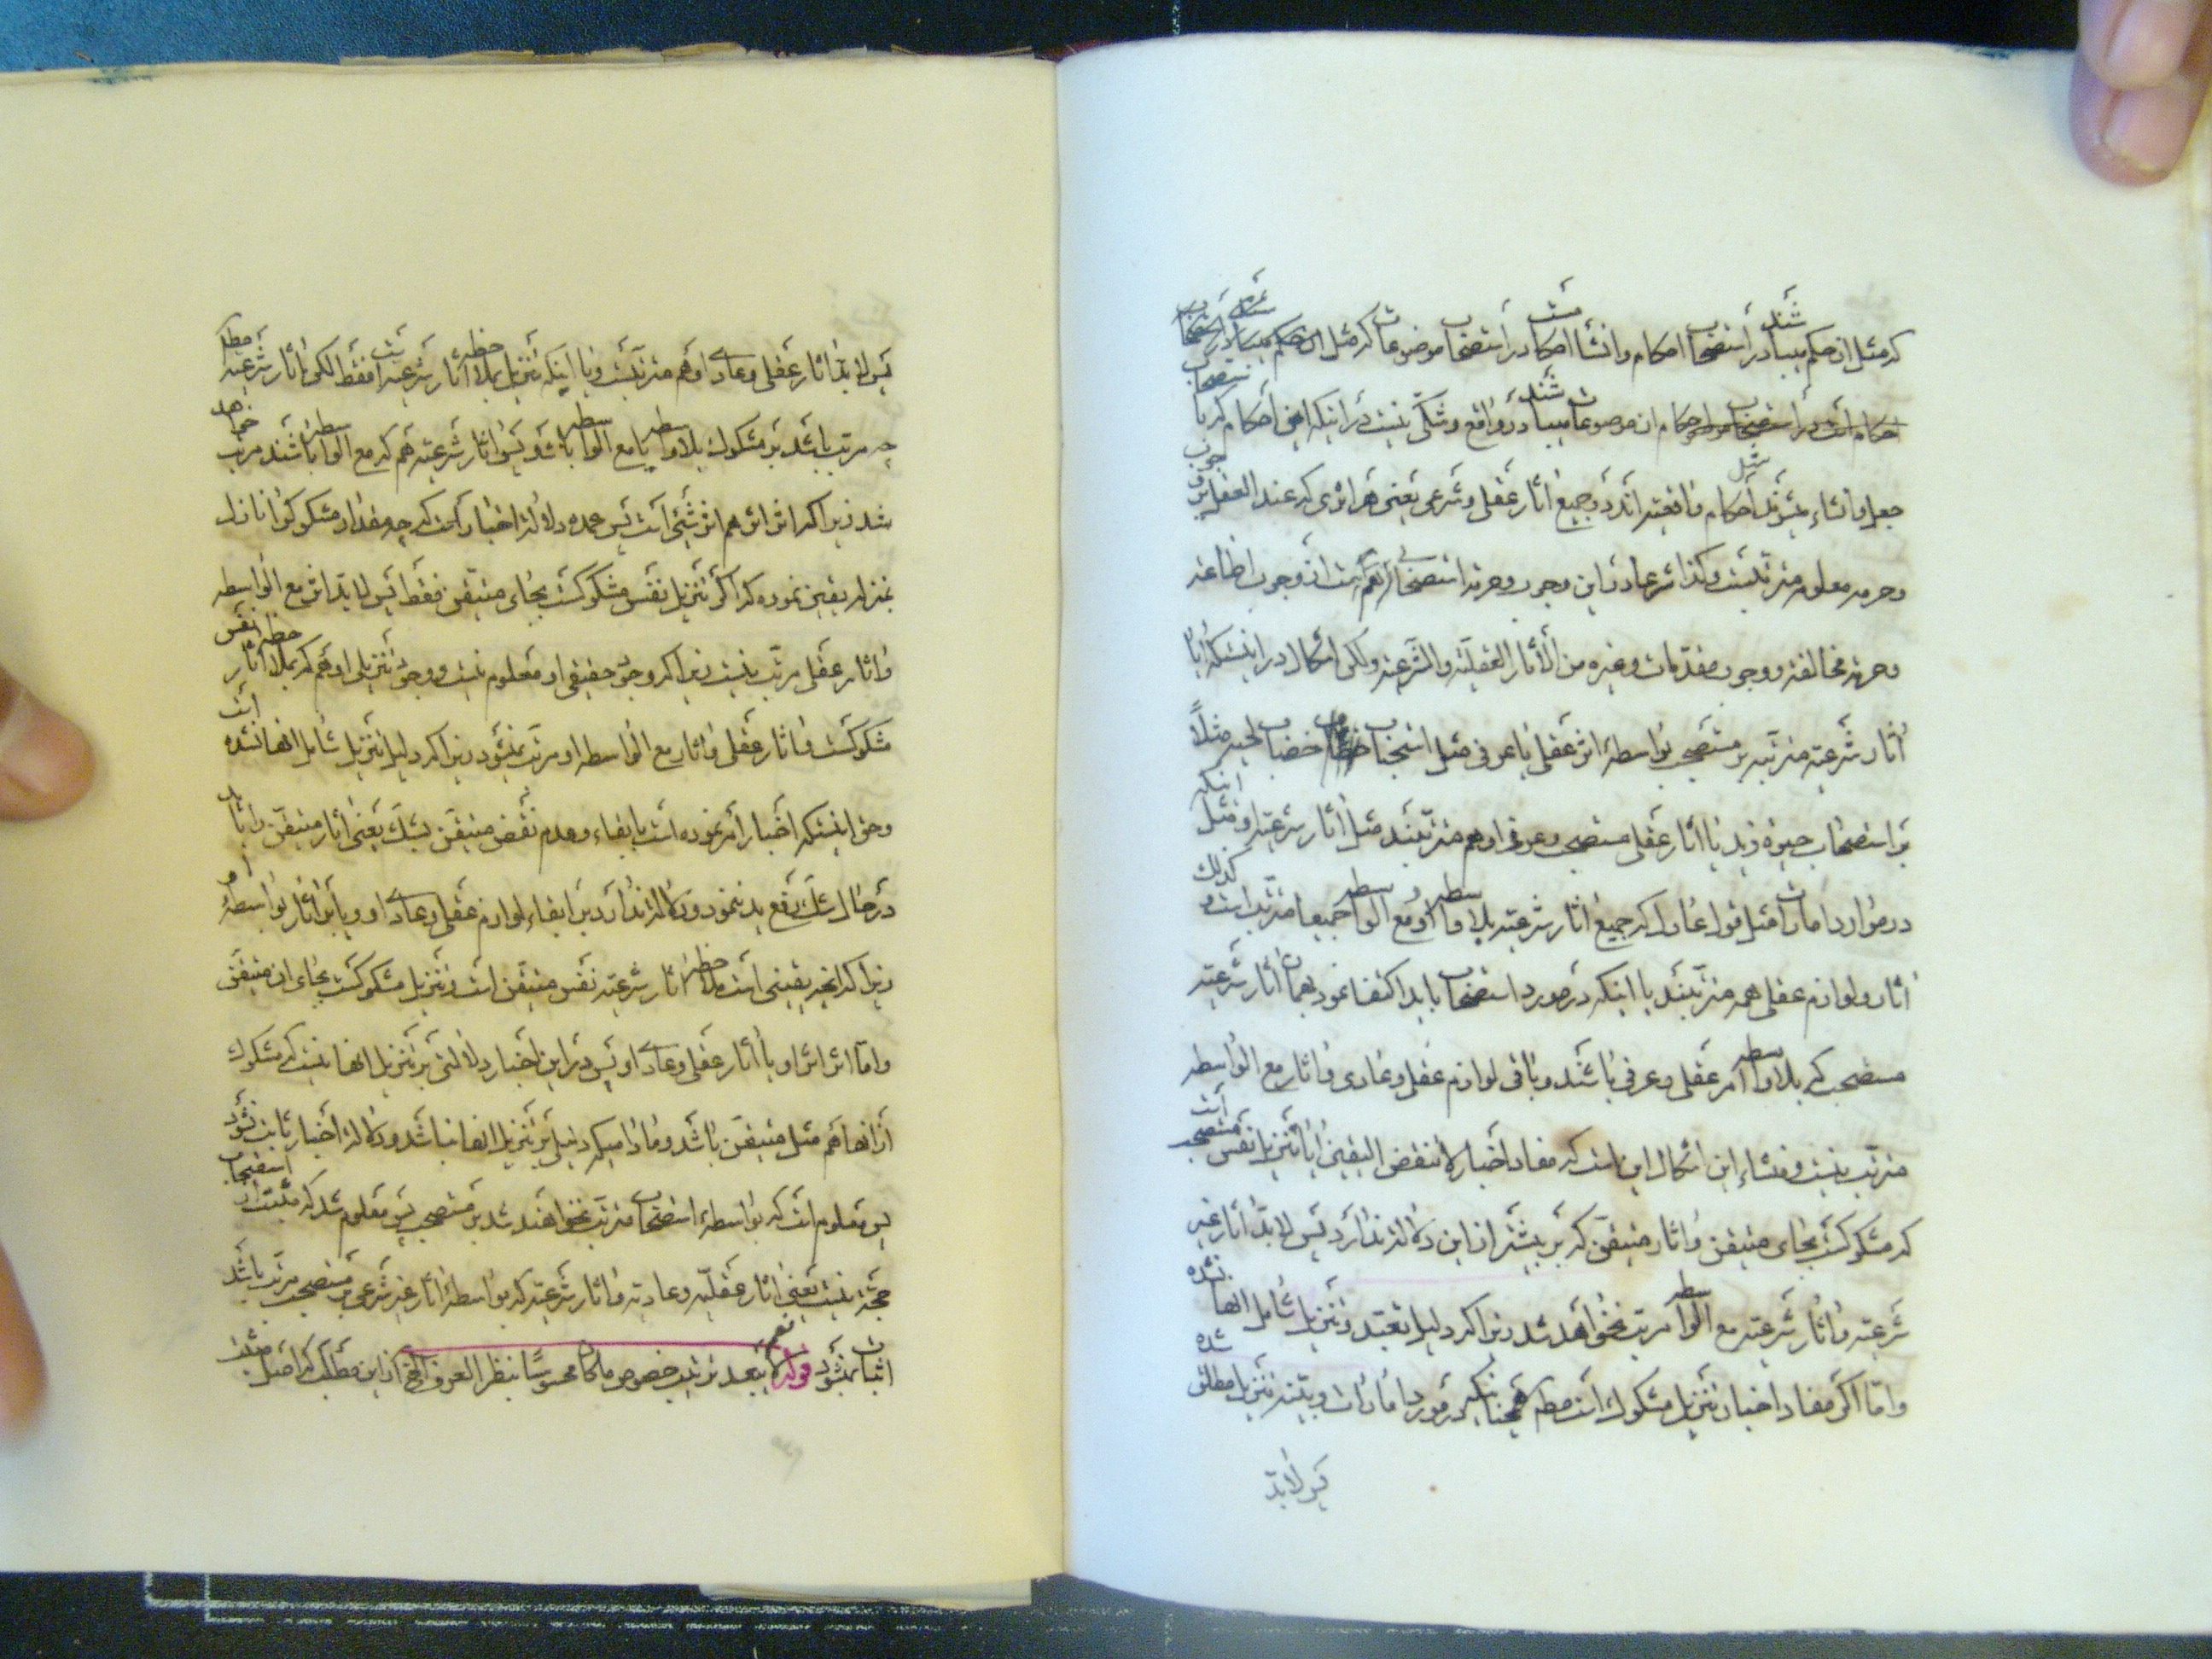 که مثل ان حکم میباشند در استصحاب احکام وانشاء احکامست در استصحاب موضوعات که مثل ان
احکام ان موضوعات میباشند در واقع وشکّی نیست در اینکه این احکام که باستصحاب
جعل وانشاء میشوند مثل احکام واقعیه اند در جمیع اثار عقلی وشرعی یعنی هر اثری که عند العقل بر وجوب
وحرمه معلومه مترتبست وکذا شرعا در این وجوب وحرمه استصحابی هم است از وجوب اطاعه
وحرمه مخالفته ووجوب مقدّمات وغیره من الأثار العقلیّه والشّرعیه ولکن اشکال در اینستکه ایا
اثار شرعیه مترتبه بر مستصحب بواسطهٔ اثر عقلی یا عرفی مثل استحباب خضاب لحیه مثلاً
بر استصحاب حیوة زید یا اثار عقلی مستصحب وعرفی او هم مترتبند مثل اثار شرعیه او مثل اینکه
در موارد امارات مثل قول عادل که جمیع اثار شرعیه بلا واسطه او ومع الواسطه جمیعا مترتب است وکذلک
اثار ولوازم عقلی همه مترتبند یا اینکه در مورد استصحاب باید اکتفا نمود بهمان اثار شرعیه
مستصحب که بلا واسطه امر عقلی وعرفی باشند وباقی لوازم عقلی وعادی واثار مع الواسطه
مترتب نیست ومنشاء این اشکال این است که مفاد اخبار لا تنقض الیقین ایا تنزیل نفس مستصحب است
که مشکوکست بجای متیقن واثار متیقّن که بر بیشتر از این دلالة ندارد پس لابدّ اثار غیر
شرعیه واثار شرعیه مع الواسطه مرتب نخواهد شد زیرا که دلیل تعبّد وتنزیل شامل انها نشده
وامّا اگر مفاد اخبار تنزیل مشکوک است مطلقا همچنانیکه در مورد امارات وبیّنه تنزیل مطلق شده
پس لابدّ
پس لابدّ اثار عقلی وعادی او هم مترتبست ویا اینکه تنزیل بملاحظه اثار شرعیه است فقط لکن با اثار شرعیه مطلقا
چه مرتب باشد بر مشکوک بلا واسطه یا مع الواسطه باشد پس اثار شرعیه هم که مع الواسطه باشند مرتب خواهد
شد زیرا که اثر اثر هم اثر شیئ است پس عمده دلالة اخبار است که چه مقدار مشکوک را نازل
بمنزله یقین نموده که اگر تنزیل نفس مشکوکست بجای متیقن فقط پس لابد اثر مع الواسطه
واثار عقلی مرتّب نیست زیرا که وجود حقیقی او معلوم نیست ووجود تنزیلی او هم که بملاحظه اثار نفس
مشکوکست واثار عقلی واثار مع الواسطه او مرتب نمیشود زیرا که دلیل تنزیل شامل انها نشده است
وحق اینستکه اخبار امر نموده است بابقاء وعدم نقض متیقن بشک یعنی اثار متیقّن را باید
در حال شک رفع ید ننمود ودلالة ندارد بر ابقاء لوازم عقلی وعادی او ویا بر اثار بواسطهٔ او
زیرا که انچه یقینی است ملاحظه اثار شرعیه نفس متیقن است وتنزیل مشکوکست بجای ان متیقن
وامّا اثر اثر او یا اثار عقلی وعادی او پس در این اخبار دلالتی بر تنزیل انها نیست که مشکوک
از انها هم مثل متیقن باشد ومادامیکه دلیلی بر تنزیل انها نباشد ودلالة اخبار ثابت نشود
پس معلوم است که بواسطهٔ استصحاب مترتب نخواهند شد بر مستصحب پس معلوم شد که مثبت از استصحاب
حجّة نیست یعنی اثار عقلیّه وعادیه واثار شرعیه که بواسطهٔ اثار غیر شرعی بر مستصحب مرتب باشد
اثبات نمیشود قوله نعم لا یبعد ترتیب خصوص ما کان محسوسًا بنظر العرف الخ از این مطلب که اصل مثبت